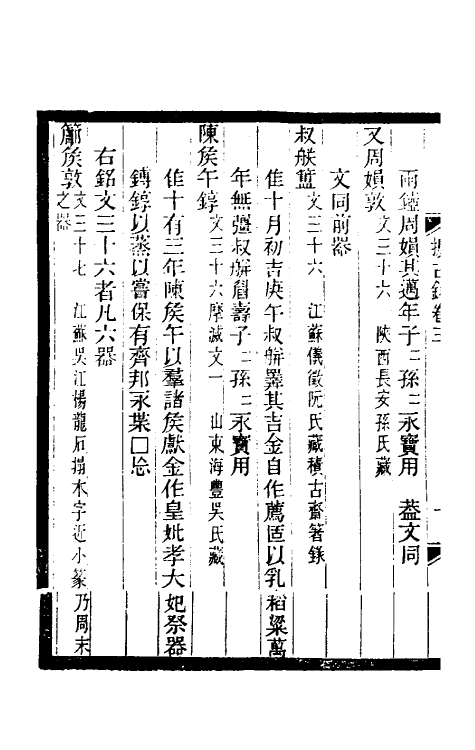 兩鐈周娟其邁年子二孫二永寶用 葢文同
又周娟敦 文三十六 陝西長安孫氏藏
文同前器
叔朕簠 文三十六 江蘇儀徵阮氏藏積古齋箸錄
隹十月初吉庚午叔朕擇其吉金自作薦簠以乳稻粱萬
年無彊叔朕眉壽子二孫二永寶用
陳矦午錞 文三十六摩滅文一 山東海豐吳氏藏
隹十有三年陳矦午以羣諸矦獻金作皇妣孝大妃祭器
鎛錞以蒸以嘗保有齊邦永枼□忘
右銘文三十六者凡六器
矦敦 文三十七 江蘇吳江楊龍石搨本字近小篆乃周末
之器
攈古錄卷三